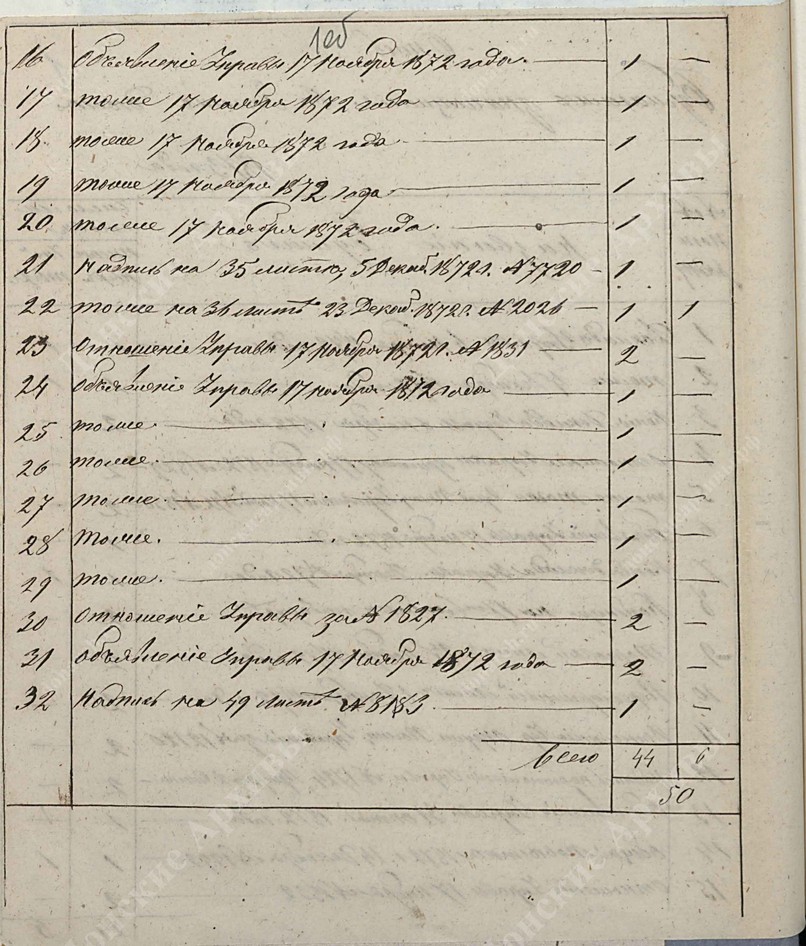 1об
16 Объявленіе Управы 17 Ноября 1872 года. — 1 —
17 тоже 17 Ноября 1872 года — 1 —
18. тоже 17 Ноября 1872 года — 1 —
19 тоже 17 Ноября 1872 года — 1 —
20. тоже 17 Ноября 1872 года. — 1 —
21 Надпись на 35 листѣ, 5 Декаб. 1872 г. № 7720 — 1 —
22 тоже на 36 листѣ 23 Декаб. 1872 г. № 2026 — 1 1
23 Отношеніе Управы 17 Ноября 1872 г. № 1831 — 2 —
24 Объявленіе Управы 17 Ноября 1872 года — 1 —
25 тоже. — 1 —
26 тоже. — 1 —
27 тоже. — 1 —
28 тоже. — 1 —
29 тоже. — 1 —
30 Отношеніе Управы за № 1827. — 2 —
31 Объявленіе Управы 17 Ноября 1872 года — 2 —
32 Надпись на 49 листѣ № 8183. — 1 —
всего 44 6
50